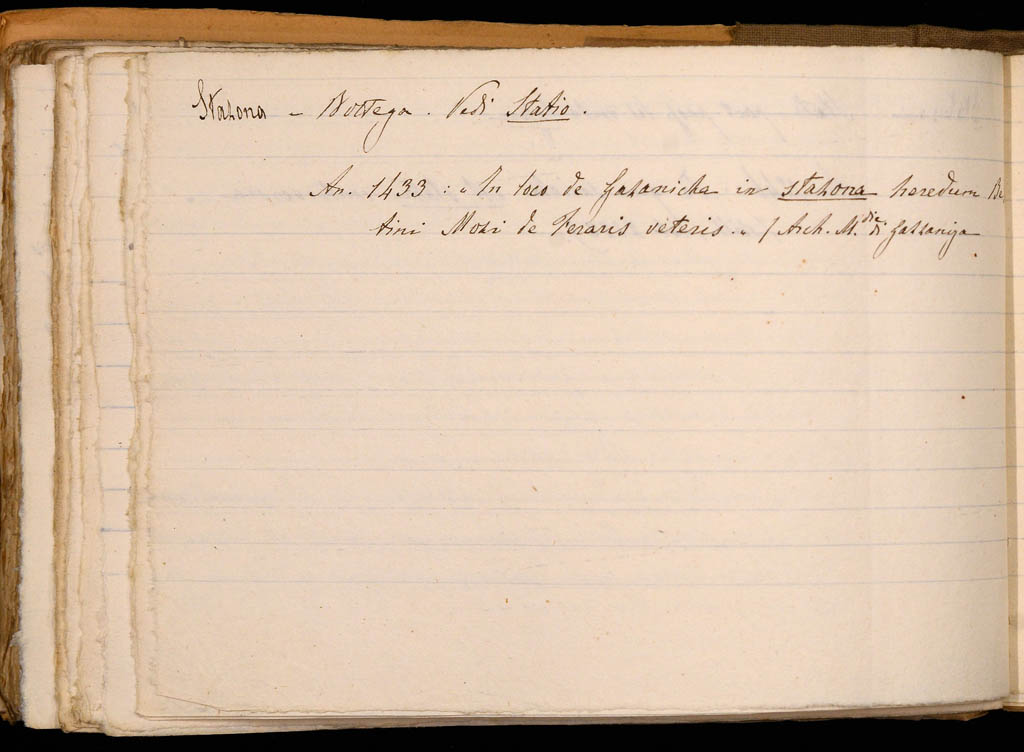 Stazona - Bottega. Vedi Statio.
An. 1433: "In loco de Gazanicha in stazona heredum Be
tini Mozi de Feraris veteris." (Arch. M.die di Gazzaniga